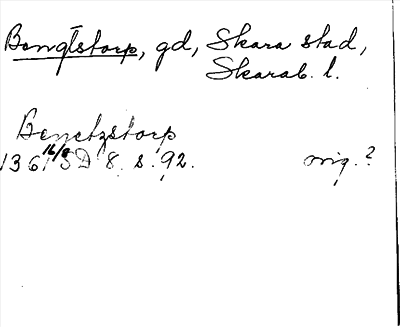 Bengtstorp, gd, Skara stad,
Skarab. l.
Benetzstorp
1361 16/8 SD 8. s. 92. orig.?